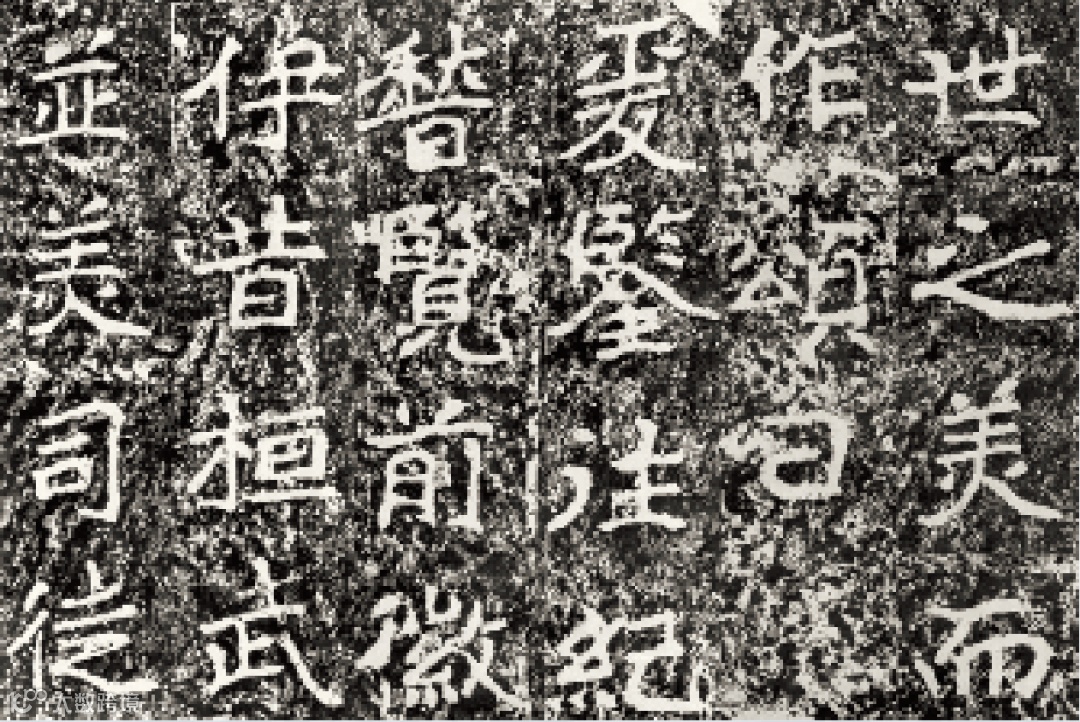 世之美而
作頌曰
爰鑒往紀
稽覽前徽
伊昔桓武
並美司徒
大数跨境